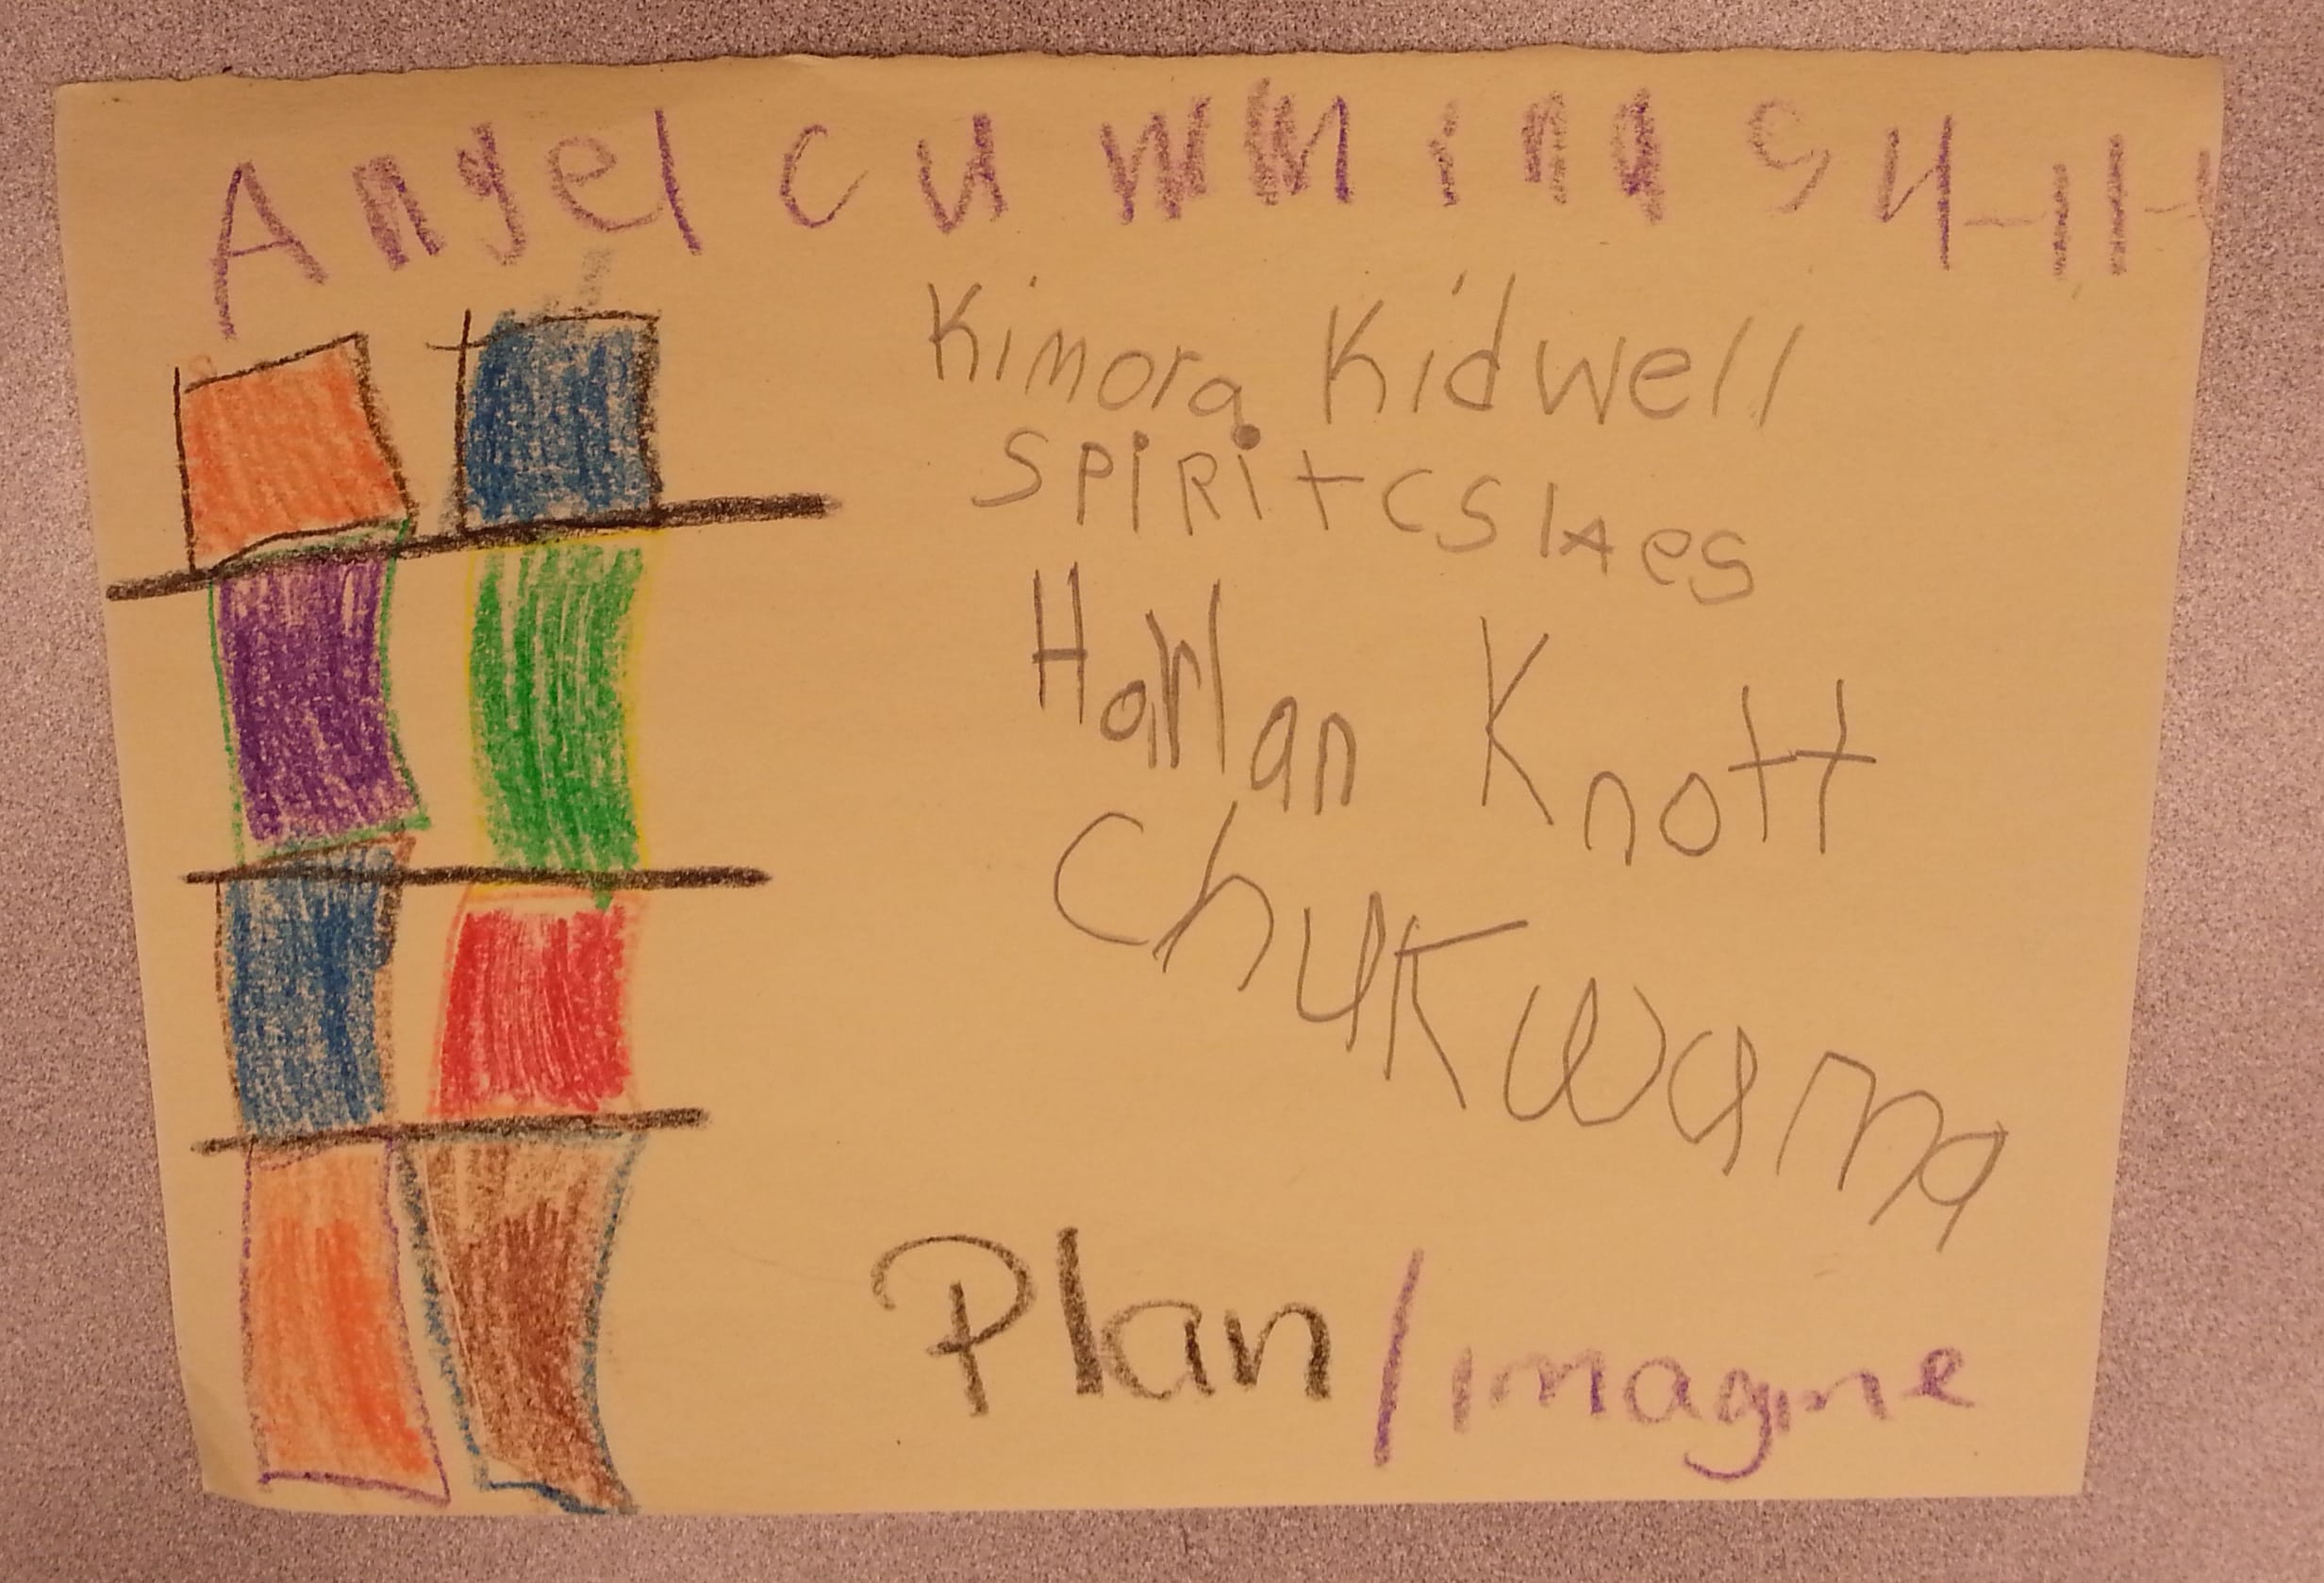 Angel cummings 4-11-
Kimora Kidwell
SPiRit CSlAes
Harlan Knott
Chukwama
Plan/imagine